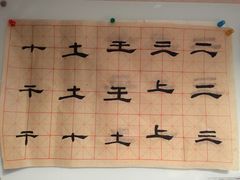 二二三
三上上
王王土
土土十
十干干